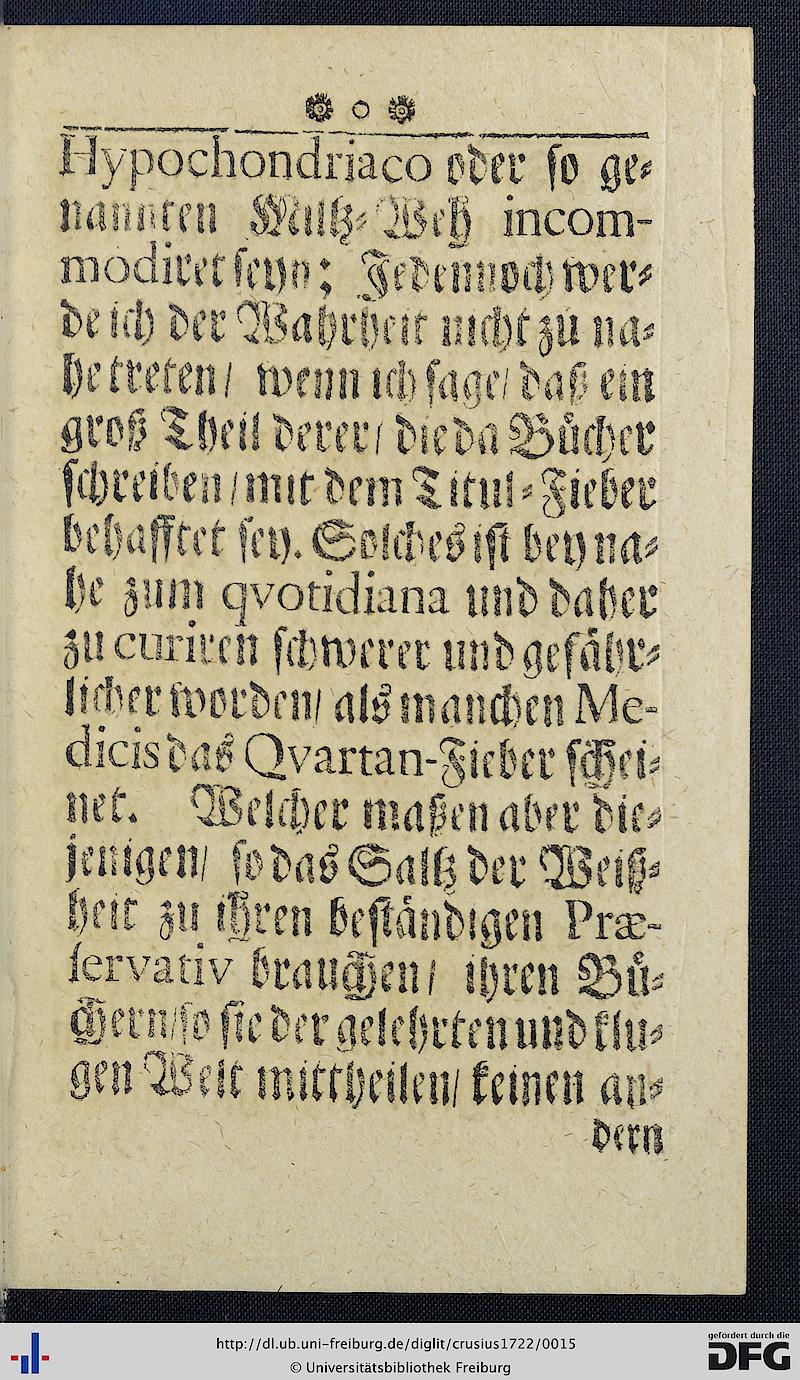 Hypochondriaco oder ſo ge⸗
nannten Miltz⸗Weh incom-
modiret ſeyn; Jedennoch wer⸗
de ich der Wahrheit nicht zu na⸗
he treten/ wenn ich ſage/ daß ein
groß Theil derer/ die da Buͤcher
ſchreiben/ mit dem Titul⸗Fieber
behafftet ſey. Solches iſt bey na⸗
he zum qvotidiana und daher
zu curiren ſchwerer und gefaͤhr⸗
licher worden/ als manchen Me-
dicis das Qvartan-Fieber ſchei⸗
net. Welcher maßen aber die⸗
jenigen/ ſo das Saltz der Weiß⸗
heit zu ihren beſtaͤndigen Præ-
ſervativ brauchen/ ihren Buͤ⸗
chern/ ſo ſie der gelehrten und klu⸗
gen Welt mittheilen/ keinen an⸗
dern
http://dl.ub.uni-freiburg.de/diglit/crusius1722/0015
© Universitätsbibliothek Freiburg
gefördert durch die
DFG